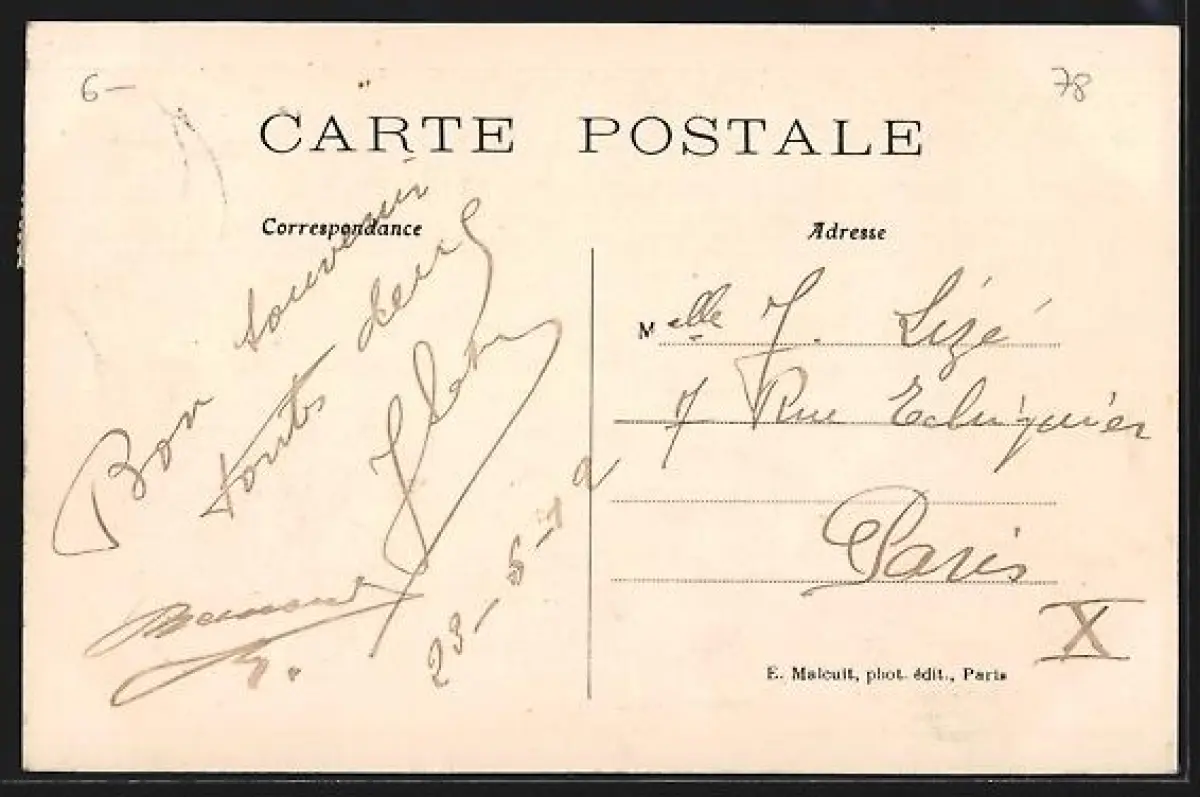 6 —
78
CARTE POSTALE
Correspondance
Adresse
Bon souvenir
toutes deux
23-5-12
Melle J. Lizé
7 Rue Echiquier
Paris
X
E. Malcuit, phot. édit., Paris